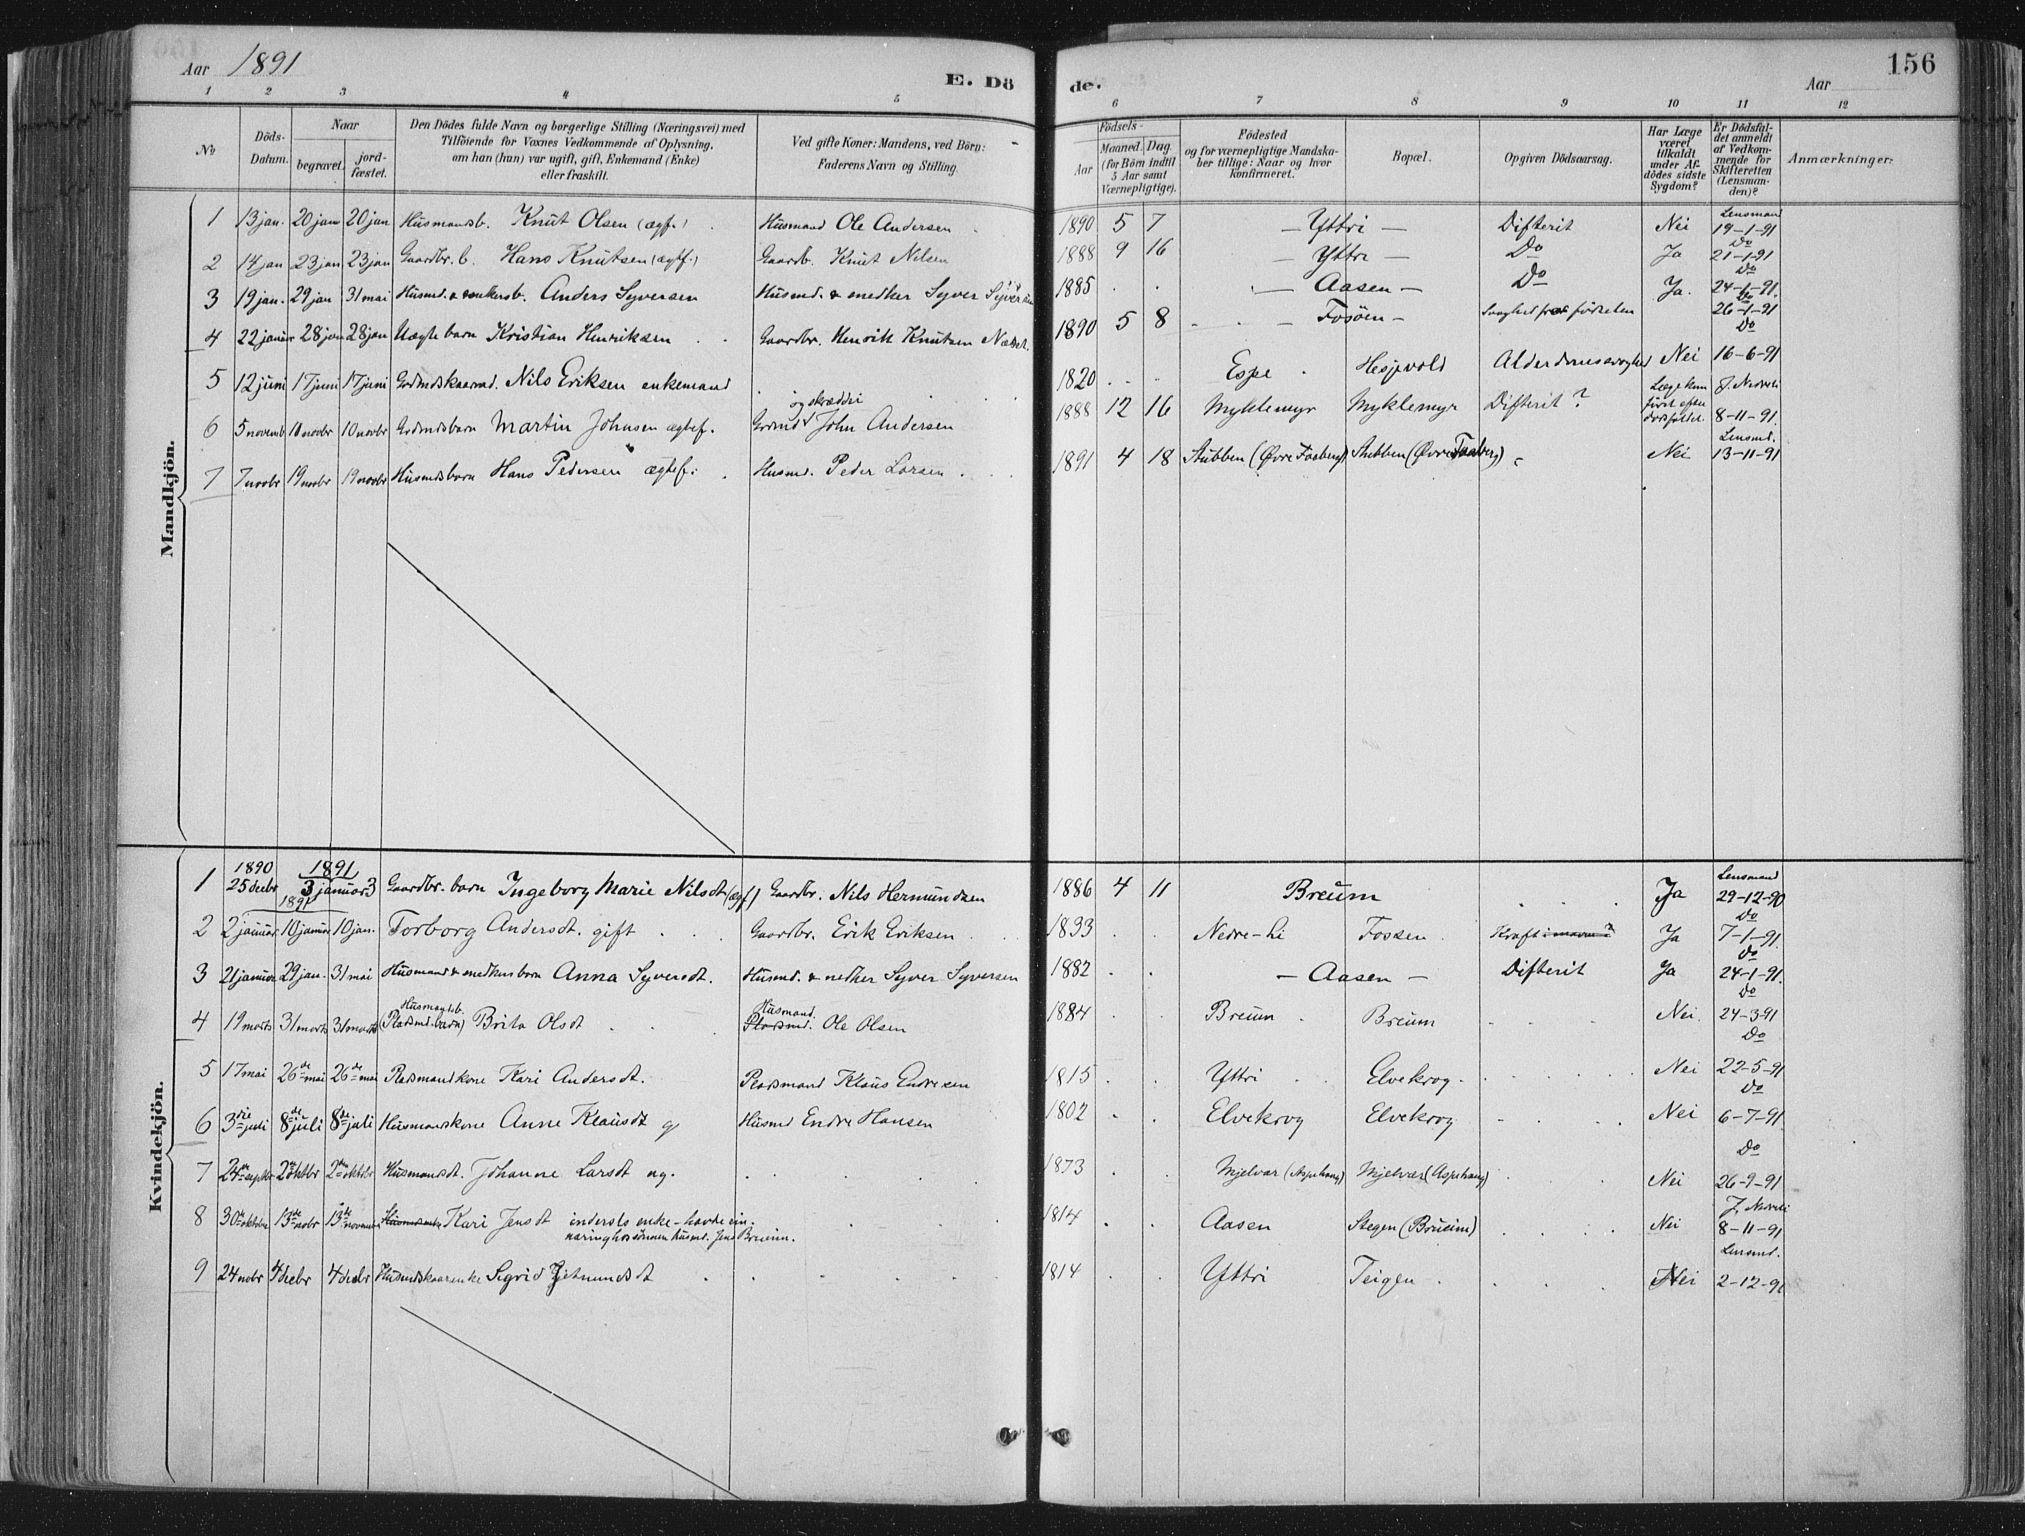 Aar 1891
E. Dö
de.
Aar
156
1 2 3 4 5 6 7 8 9 10 11 12
No
Döds-Datum.
Naar
begravet.
jord-fæstet.
Den Dödes fulde Navn og borgerlige Stilling (Næringsvei) med
Tilföiende for Voxnes Vedkommende af Oplysning,
om han (hun) var ugift, gift, Enkemand (Enke)
eller fraskilt.
Ved gifte Koner: Mandens, ved Börn:
Faderens Navn og Stilling.
Födsels-
Aar
Maaned. Dag.
(for Börn indtil
5 Aar samt
Værnepligtige).
Födested
og for værnepligtige Mandska-
ber tillige: Naar og hvor
konfirmeret.
Bopæl.
Opgiven Dödsaarsag.
Har Læge
været
tilkaldt
under Af-
dödes sidste
Sygdom?
Er Dödsfal-
det anmeldt
af Vedkom-
mende for
Skifteretten
(Lensman-
den)?
Anmærkninger.
Mandkjön.
1 13 jan. 20 jan 20 jan Husmandsb. Knut Olsen (ægf.) Husmand Ole Andersen 1890 5 7 — Yttri — Difterit Nei Lensmand 19-1-91
2 14 jan 23 jan 23 jan Gaardbr. b. Hans Knutsen (ægtf.) Gaardb. Knut Nilsen 1888 9 16 — Yttri — Do Ja Do 21-1-91
3 19 jan. 29 jan 31 mai Husmd. & Anders Syversen Husmd. & snedker Syver Syversen 1885 — Aasen — Do Ja. Do 24-1-91.
4 22 januar 28 jan 28 jan Uægte barn Kristian Henriksen Gaardbr. Henrik Knutsen 1890 5 8 — Fosöen — Svaghed fra födselen Do 26-1-91
5 12 juni 17 juni 17 juni Nils Eriksen enkemand 1820 Espe Hesjevold Alderdomssvaghed Nei Do 16-6-91
6 5 novemb 10 novbr 10 novbr Martin Johnsen ægtef. og skrædder John Andersen 1888 12 16 Myklemyr Myklemyr Difterit? Læge kom först efter dödsfaldet. 8-11-91.
7 7 novbr 19 novbr 19 novbr Husmdsbarn Hans Pedersen ægtef. Husmd. Peder Larsen 1891 4 18 Stubben (Øvre Faaberg) Stubben (Øvre Faaberg) Nei Lensmd. 13-11-91
Kvindekjön.
1 1890 25 decbr 1891 3 januar 3 Gaardbr. barn Ingeborg Marie Nilsdt (ægf) Gaardbr. Nils Hermundsen 1886 4 11 Breum Ja Lensmand 29-12-90
2 1891 2 januar 10 januar 10 jan. Torborg Andersdt. gift Gaardbr. Erik Eriksen 1833 Nedre-Li Fossen Kræft i maven? Ja Do 7-1-91.
3 21 januar 29 jan. 31 mai Husmand & snedkers barn Anna Syversdt. Husmd. & snedker Syver Syversen 1882 — Aasen — Difterit Ja Do 24-1-91.
4 19 marts 31 marts 31 marts Husmandsb. (Pladsmd. barn) Brita Olsdt Husmand Pladsmd. Ole Olsen 1884 Breum Breum Nei. Do 24-3-91
5 17 mai 26de mai 26de mai Pladsmandkone Kari Andersdt. Pladsmand Klaus Endresen 1815 Yttri Elvekrog Nei Do 22-5-91
6 3die juli 8de juli 8de juli Husmandskone Anne Klausdt g Husmd Endre Hansen 1802 Elvekrog Elvekrog Nei Do 6-7-91.
7 24de septbr 2den oktbr 2den oktobr Husmandsdt. Johanne Larsdt ug. 1873 Mjelvar (Aspehaug) Mjelvar (Aspehaug) Nei Do 26-9-91
8 30te oktober 13de nobr 13de november Kari Jensdt inderste enke - havde sin
næring hos sönnen husmd. Jens Brueim. 1814 Aasen Stegen (Brueim) Nei 8-11-91
9 24 nobr 4 decbr 4 decbr Husmdskaarenke Sigrid Jetmundsdt 1814 Yttri Teigen Nei Lensmd. 2-12-91